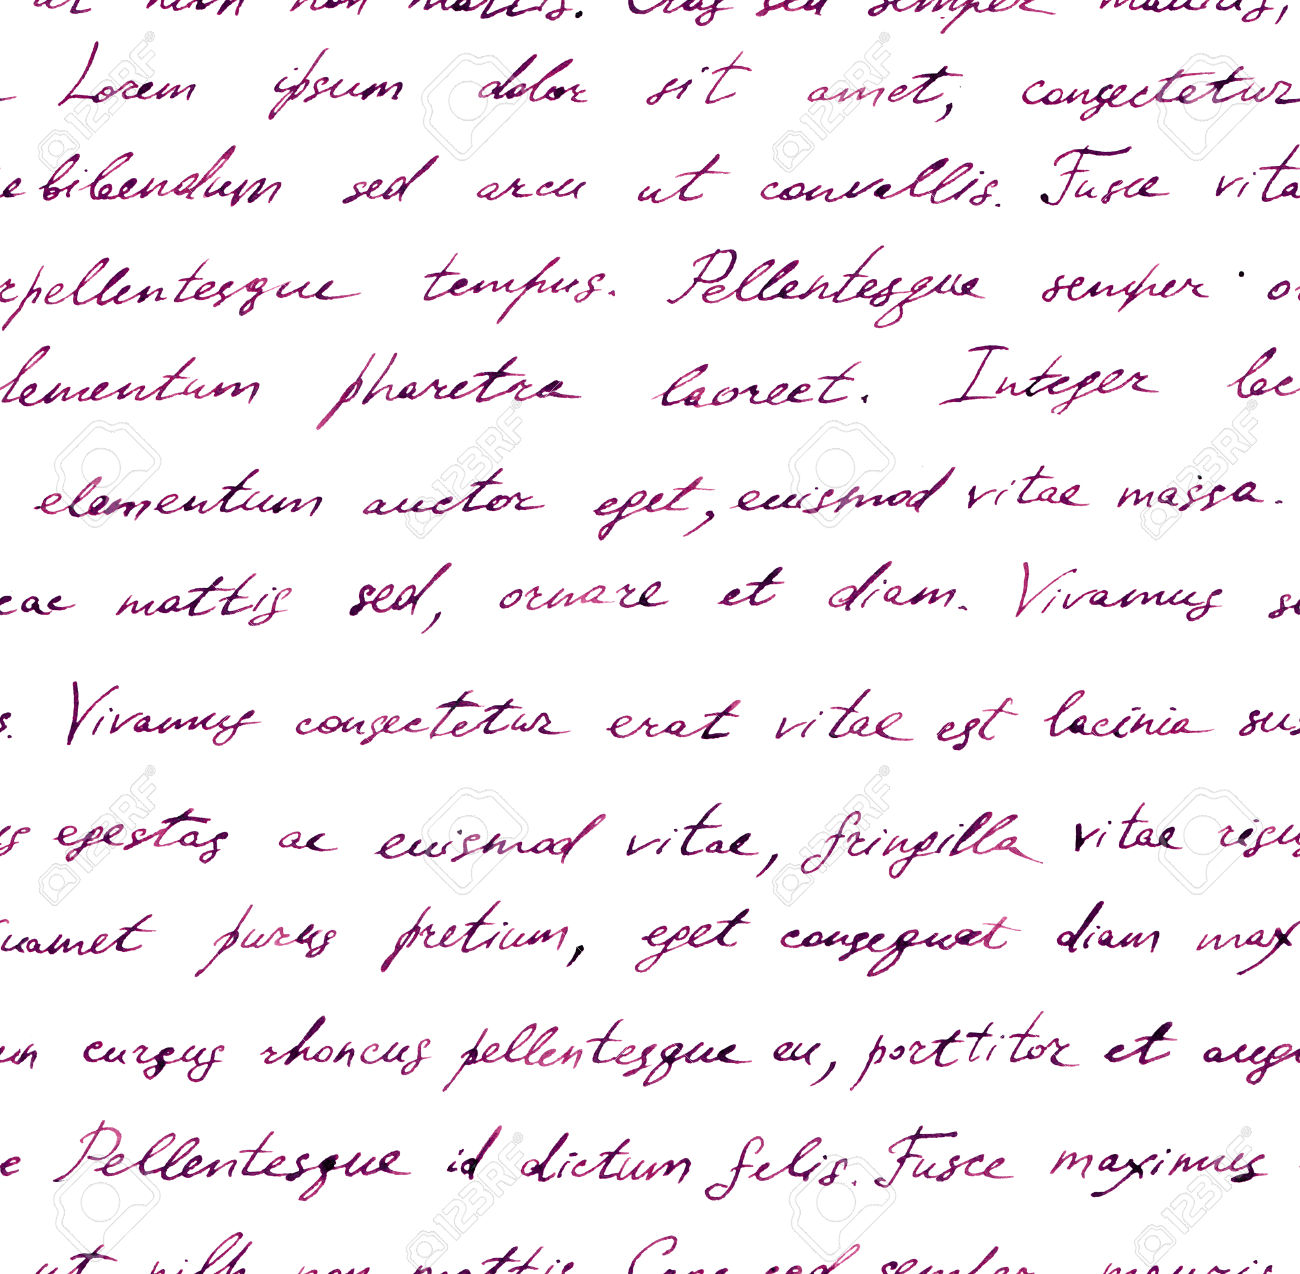 non mattis. Cras sed semper mauris,
Lorem ipsum dolor sit amet, consectetur
e bibendum sed arcu ut convallis. Fusce vita
rpellentesque tempus. Pellentesque semper or
lementum pharetra laoreet. Integer lec
elementum auctor eget, euismod vitae massa.
cac mattis sed, ornare et diam. Vivamus se
s. Vivamus consectetur erat vitae est lacinia sus
us egestas ac euismod vitae, fringilla vitae risus
uamet purus pretium, eget consequat diam max
un cursus rhoncus pellentesque eu, porttitor et augu
e Pellentesque id dictum felis. Fusce maximus
ut nibh non mattis. Cras sed semper mauris